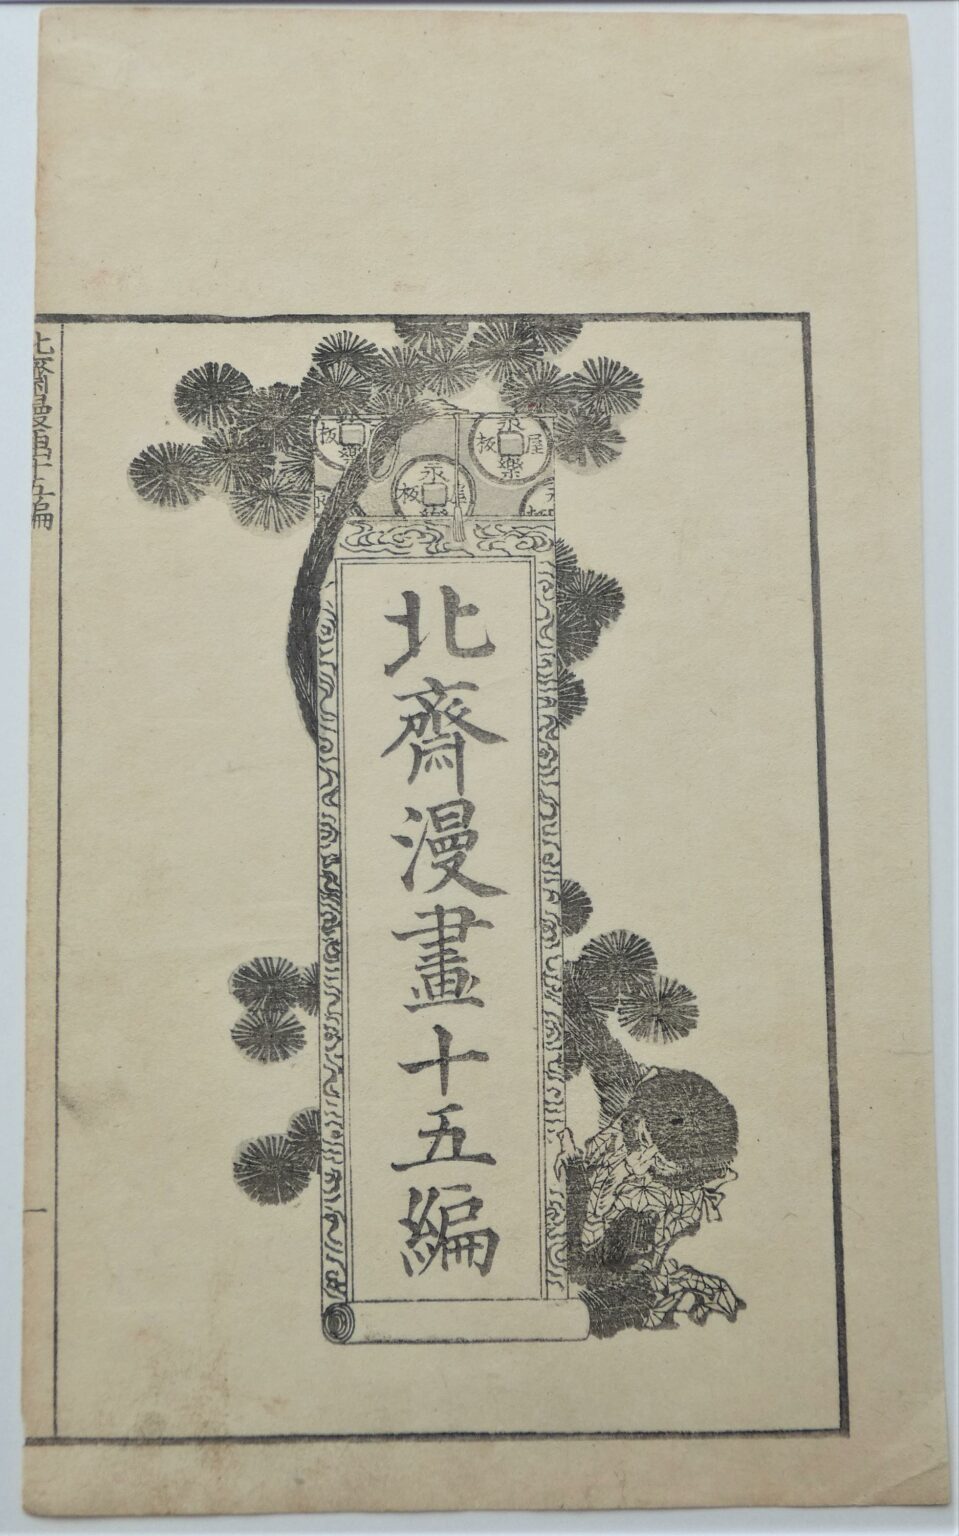 北齋漫畫十五編
永樂屋板
永樂屋板
北齋漫畫十五編
一